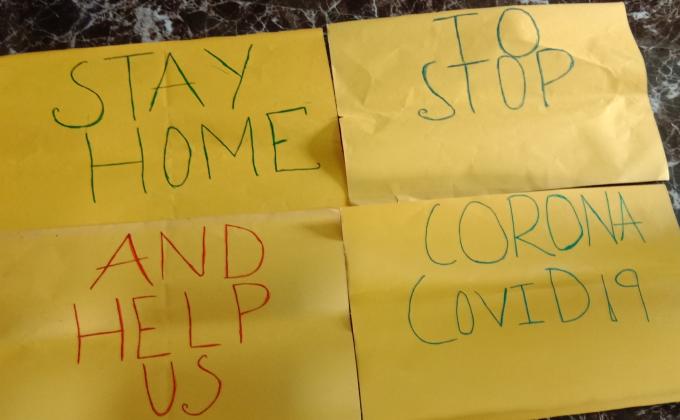 STAY
HOME
AND
HELP
US
TO
STOP
CORONA
COVID19